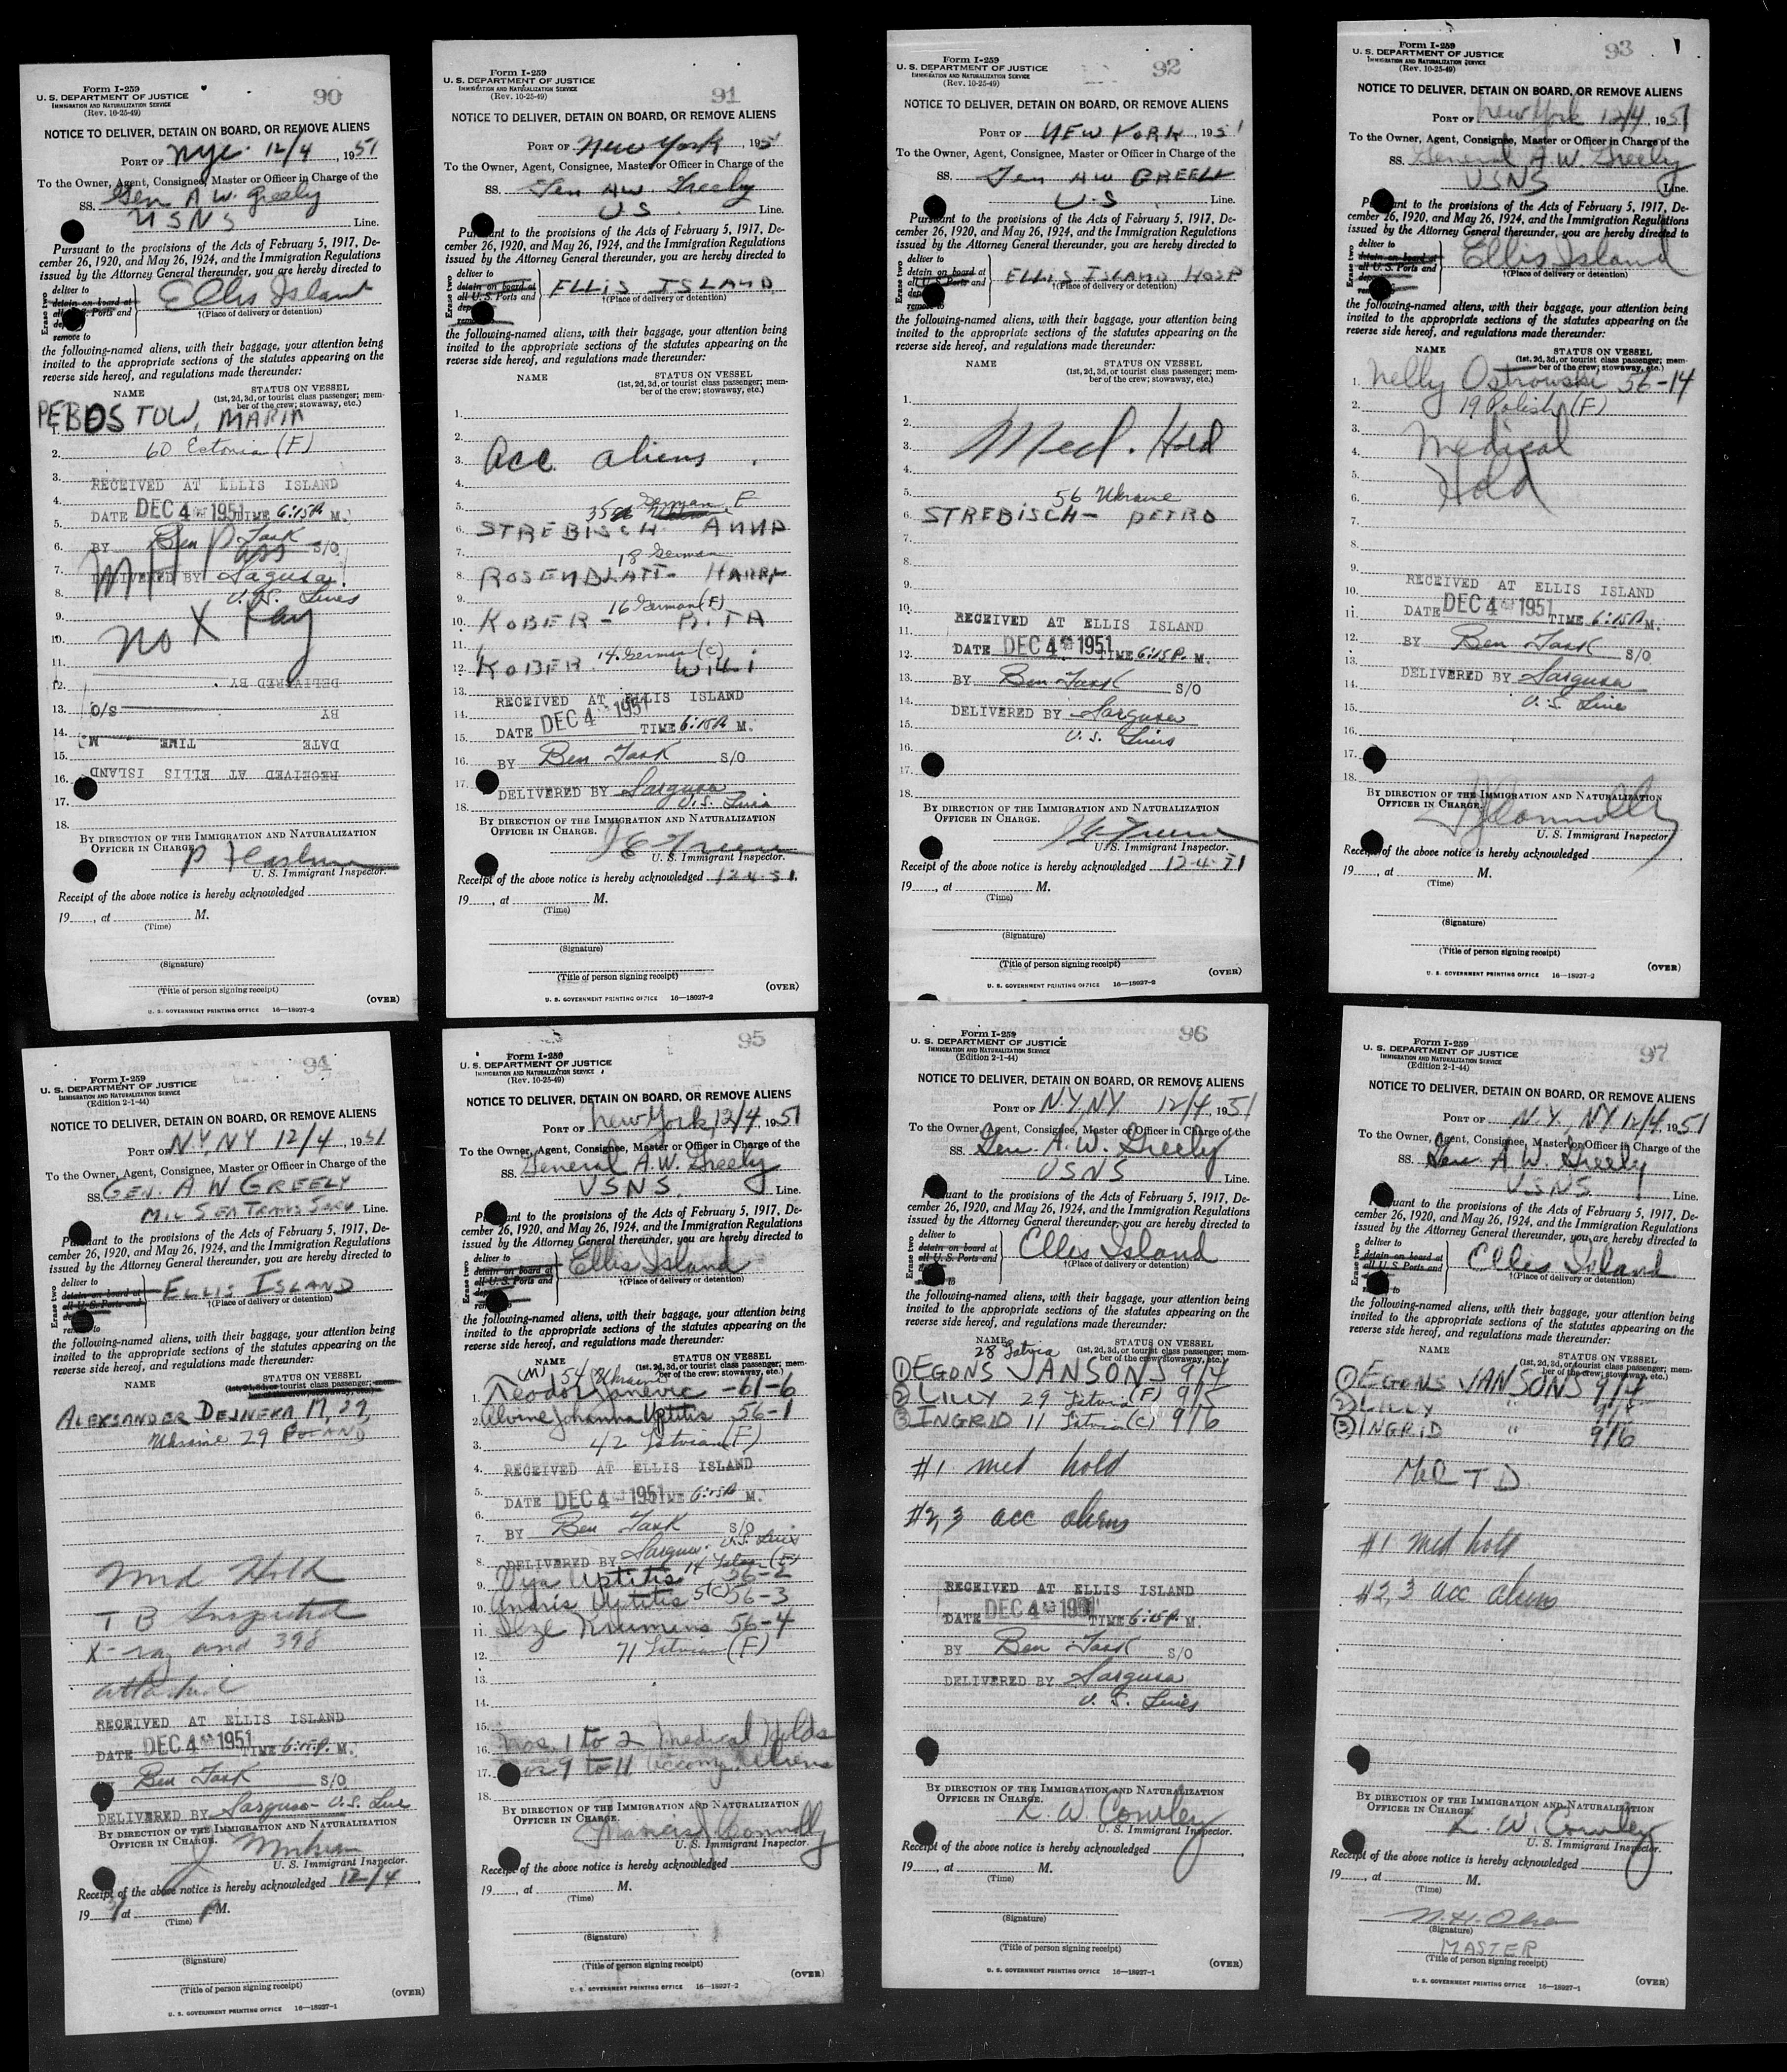 Form I-259
U. S. DEPARTMENT OF JUSTICE
IMMIGRATION AND NATURALIZATION SERVICE
(Rev. 10-25-49)
90
NOTICE TO DELIVER, DETAIN ON BOARD, OR REMOVE ALIENS
PORT OF NYC. 12/4, 1951
To the Owner, Agent, Consignee, Master or Officer in Charge of the
SS. Gen A W. Greely
USNS Line.
Pursuant to the provisions of the Acts of February 5, 1917, De-
cember 26, 1920, and May 26, 1924, and the Immigration Regulations
issued by the Attorney General thereunder, you are hereby directed to
Erase two
deliver to
detain on board at
all U. S. Ports and
remove to
Ellis Island
†(Place of delivery or detention)
the following-named aliens, with their baggage, your attention being
invited to the appropriate sections of the statutes appearing on the
reverse side hereof, and regulations made thereunder:
NAME STATUS ON VESSEL
(1st, 2d, 3d, or tourist class passenger; mem-
ber of the crew; stowaway, etc.)
1. PEBOS TOW, MARIA
2. 60 Estonia (F)
3. RECEIVED AT ELLIS ISLAND
4. DATE DEC 4 1951 TIME 6:15 P M.
5.
6. BY Ben Task S/O
7. DELIVERED BY Sagusa
8. U.S. Lines
9. no X Ray
10.
11.
12. DELIVERED BY
13. S/O BY
14. M. TIME DATE
15.
16. RECEIVED AT ELLIS ISLAND
17.
18.
BY DIRECTION OF THE IMMIGRATION AND NATURALIZATION
OFFICER IN CHARGE.
U. S. Immigrant Inspector.
Receipt of the above notice is hereby acknowledged
19, at M.
(Time)
(Signature)
(Title of person signing receipt)
(OVER)
U. S. GOVERNMENT PRINTING OFFICE 16—18927-2
Form I-259
U. S. DEPARTMENT OF JUSTICE
IMMIGRATION AND NATURALIZATION SERVICE
(Rev. 10-25-49)
91
NOTICE TO DELIVER, DETAIN ON BOARD, OR REMOVE ALIENS
PORT OF New York, 195
To the Owner, Agent, Consignee, Master or Officer in Charge of the
SS. Gen AW. Greely
U S. Line.
Pursuant to the provisions of the Acts of February 5, 1917, De-
cember 26, 1920, and May 26, 1924, and the Immigration Regulations
issued by the Attorney General thereunder, you are hereby directed to
Erase two
deliver to
detain on board at
all U. S. Ports and
ELLIS ISLAND
†(Place of delivery or detention)
the following-named aliens, with their baggage, your attention being
invited to the appropriate sections of the statutes appearing on the
reverse side hereof, and regulations made thereunder:
NAME STATUS ON VESSEL
(1st, 2d, 3d, or tourist class passenger; mem-
ber of the crew; stowaway, etc.)
1.
2.
3. Acc. aliens.
4.
5. 35 German F
6. STREBISCH ANNA
7. 18 German
8. ROSENBLATT- HARRY
9. 16 German (F)
10. KOBER - RITA
11. 14 German (C)
12. KOBER WILI
13. RECEIVED AT ELLIS ISLAND
14. DATE DEC 4 1951
15. TIME 6:15 P M.
16. BY Ben Task S/O
17. DELIVERED BY Sargusa
18. U.S. Lines
BY DIRECTION OF THE IMMIGRATION AND NATURALIZATION
OFFICER IN CHARGE. J E Greene
U. S. Immigrant Inspector.
Receipt of the above notice is hereby acknowledged 12-4-51.
19, at M.
(Time)
(Signature)
(Title of person signing receipt)
(OVER)
U. S. GOVERNMENT PRINTING OFFICE 16—18927-2
Form I-259
U. S. DEPARTMENT OF JUSTICE
IMMIGRATION AND NATURALIZATION SERVICE
(Rev. 10-25-49)
92
NOTICE TO DELIVER, DETAIN ON BOARD, OR REMOVE ALIENS
PORT OF NEW YORK, 1951
To the Owner, Agent, Consignee, Master or Officer in Charge of the
SS. Gen AW GREELY
U.S. Line.
Pursuant to the provisions of the Acts of February 5, 1917, De-
cember 26, 1920, and May 26, 1924, and the Immigration Regulations
issued by the Attorney General thereunder, you are hereby directed to
Erase two
deliver to
detain on board at
all U. S. Ports and
ELLIS ISLAND HOSP
†(Place of delivery or detention)
the following-named aliens, with their baggage, your attention being
invited to the appropriate sections of the statutes appearing on the
reverse side hereof, and regulations made thereunder:
NAME STATUS ON VESSEL
(1st, 2d, 3d, or tourist class passenger; mem-
ber of the crew; stowaway, etc.)
1.
2.
3. Med. Hold
4.
5. 56 Ukraine
6. STREBISCH- PETRO
7.
8.
9.
10. RECEIVED AT ELLIS ISLAND
11.
12. DATE DEC 4 1951 TIME 6:15 P. M.
13. BY Ben Task S/O
14. DELIVERED BY Sargusa
15. U. S. Lines
16.
17.
18.
BY DIRECTION OF THE IMMIGRATION AND NATURALIZATION
OFFICER IN CHARGE. J E Greene
U. S. Immigrant Inspector.
Receipt of the above notice is hereby acknowledged 12-4-51
19, at M.
(Time)
(Signature)
(Title of person signing receipt)
(OVER)
U. S. GOVERNMENT PRINTING OFFICE 16—18927-2
Form I-259
U. S. DEPARTMENT OF JUSTICE
IMMIGRATION AND NATURALIZATION SERVICE
(Rev. 10-25-49)
93
NOTICE TO DELIVER, DETAIN ON BOARD, OR REMOVE ALIENS
PORT OF New York 12/4, 1951
To the Owner, Agent, Consignee, Master or Officer in Charge of the
SS. General A W. Greely
USNS Line.
Pursuant to the provisions of the Acts of February 5, 1917, De-
cember 26, 1920, and May 26, 1924, and the Immigration Regulations
issued by the Attorney General thereunder, you are hereby directed to
Erase two
deliver to
detain on board at
all U. S. Ports and
Ellis Island
†(Place of delivery or detention)
the following-named aliens, with their baggage, your attention being
invited to the appropriate sections of the statutes appearing on the
reverse side hereof, and regulations made thereunder:
NAME STATUS ON VESSEL
(1st, 2d, 3d, or tourist class passenger; mem-
ber of the crew; stowaway, etc.)
1. Nelly Ostrowski 56-14
2. 19 Polish (F)
3. Medical
4.
5. Hold
6.
7.
8.
9.
10. RECEIVED AT ELLIS ISLAND
11. DATE DEC 4 1951 TIME 6:15 P M.
12. BY Ben Task S/O
13.
14. DELIVERED BY Sargusa
15. U. S. Line
16.
17.
18.
BY DIRECTION OF THE IMMIGRATION AND NATURALIZATION
OFFICER IN CHARGE. Connolly
U. S. Immigrant Inspector.
Receipt of the above notice is hereby acknowledged
19, at M.
(Time)
(Signature)
(Title of person signing receipt)
(OVER)
U. S. GOVERNMENT PRINTING OFFICE 16—18927-2
Form I-259
U. S. DEPARTMENT OF JUSTICE
IMMIGRATION AND NATURALIZATION SERVICE
(Edition 2-1-44)
94
NOTICE TO DELIVER, DETAIN ON BOARD, OR REMOVE ALIENS
PORT OF N.Y, NY 12/4, 1951
To the Owner, Agent, Consignee, Master or Officer in Charge of the
SS. GEN. A W GREELY
MIL SEA TRANS SERV Line.
Pursuant to the provisions of the Acts of February 5, 1917, De-
cember 26, 1920, and May 26, 1924, and the Immigration Regulations
issued by the Attorney General thereunder, you are hereby directed to
Erase two
deliver to
detain on board at
all U. S. Ports and
ELLIS ISLAND
†(Place of delivery or detention)
the following-named aliens, with their baggage, your attention being
invited to the appropriate sections of the statutes appearing on the
reverse side hereof, and regulations made thereunder:
NAME STATUS ON VESSEL
(1st, 2d, 3d, or tourist class passenger; mem-
ber of the crew; stowaway, etc.)
ALEKSANDER DEJNEKA M, 29,
Ukraine 29 POLAND
Med Hold
T B Suspected
X-ray and 398
attached
RECEIVED AT ELLIS ISLAND
DATE DEC 4 1951 TIME 6:15 P. M.
BY Ben Task S/O
DELIVERED BY Sargusa - U.S. Line
BY DIRECTION OF THE IMMIGRATION AND NATURALIZATION
OFFICER IN CHARGE.
U. S. Immigrant Inspector.
Receipt of the above notice is hereby acknowledged 12/4
19, at P M.
(Time)
(Signature)
(Title of person signing receipt)
(OVER)
U. S. GOVERNMENT PRINTING OFFICE 16—18927-1
Form I-259
U. S. DEPARTMENT OF JUSTICE
IMMIGRATION AND NATURALIZATION SERVICE
(Rev. 10-25-49)
95
NOTICE TO DELIVER, DETAIN ON BOARD, OR REMOVE ALIENS
PORT OF New York, 12/4, 1951
To the Owner, Agent, Consignee, Master or Officer in Charge of the
SS. General A.W. Greely
USNS. Line.
Pursuant to the provisions of the Acts of February 5, 1917, De-
cember 26, 1920, and May 26, 1924, and the Immigration Regulations
issued by the Attorney General thereunder, you are hereby directed to
Erase two
deliver to
detain on board at
all U. S. Ports and
Ellis Island
†(Place of delivery or detention)
the following-named aliens, with their baggage, your attention being
invited to the appropriate sections of the statutes appearing on the
reverse side hereof, and regulations made thereunder:
NAME STATUS ON VESSEL
(1st, 2d, 3d, or tourist class passenger; mem-
ber of the crew; stowaway, etc.)
(M) 54 Ukraine
1. Teodor Janevic -61-6
2. Alvine Johanna Uptitis 56-1
3. 42 Latvian (F)
4. RECEIVED AT ELLIS ISLAND
5. DATE DEC 4 1951 TIME 6:15 P M.
6.
7. BY Ben Task S/O
8. DELIVERED BY Sargusa U.S. Lines
9. Vija Uptitis 14 Latvian (F) 56-2
10. Andris Uptitis 5(C) 56-3
11. Ieze Krumins 56-4
12. 71 Latvian (F)
13.
14.
15.
16. Nos. 1 to 2 Medical Holds
17. Nos 9 to 11 Accomp. Aliens
18.
BY DIRECTION OF THE IMMIGRATION AND NATURALIZATION
OFFICER IN CHARGE. Francis J Connolly
U. S. Immigrant Inspector.
Receipt of the above notice is hereby acknowledged
19, at M.
(Time)
(Signature)
(Title of person signing receipt)
(OVER)
U. S. GOVERNMENT PRINTING OFFICE 16—18927-2
Form I-259
U. S. DEPARTMENT OF JUSTICE
IMMIGRATION AND NATURALIZATION SERVICE
(Edition 2-1-44)
96
NOTICE TO DELIVER, DETAIN ON BOARD, OR REMOVE ALIENS
PORT OF N.Y, NY 12/4, 1951
To the Owner, Agent, Consignee, Master or Officer in Charge of the
SS. Gen. A.W. Greely
USNS Line.
Pursuant to the provisions of the Acts of February 5, 1917, De-
cember 26, 1920, and May 26, 1924, and the Immigration Regulations
issued by the Attorney General thereunder, you are hereby directed to
Erase two
deliver to
detain on board at
all U. S. Ports and
Ellis Island
†(Place of delivery or detention)
the following-named aliens, with their baggage, your attention being
invited to the appropriate sections of the statutes appearing on the
reverse side hereof, and regulations made thereunder:
NAME STATUS ON VESSEL
28 Latvia (1st, 2d, 3d, or tourist class passenger; mem-
ber of the crew; stowaway, etc.)
① EGONS JANSONS 9/4
② LILLY 29 Latvia (F) 9/5
③ INGRID 11 Latvia (C) 9/6
#1 med hold
#2, 3 acc aliens
RECEIVED AT ELLIS ISLAND
DATE DEC 4 1951 TIME 6:15 P. M.
BY Ben Task S/O
DELIVERED BY Sargusa
U. S. Lines
BY DIRECTION OF THE IMMIGRATION AND NATURALIZATION
OFFICER IN CHARGE. L. W. Cowley
U. S. Immigrant Inspector.
Receipt of the above notice is hereby acknowledged
19, at M.
(Time)
(Signature)
(Title of person signing receipt)
(OVER)
U. S. GOVERNMENT PRINTING OFFICE 16—18927-1
Form I-259
U. S. DEPARTMENT OF JUSTICE
IMMIGRATION AND NATURALIZATION SERVICE
(Edition 2-1-44)
97
NOTICE TO DELIVER, DETAIN ON BOARD, OR REMOVE ALIENS
PORT OF N.Y, NY 12/4, 1951
To the Owner, Agent, Consignee, Master or Officer in Charge of the
SS. Gen. A.W. Greely
USNS Line.
Pursuant to the provisions of the Acts of February 5, 1917, De-
cember 26, 1920, and May 26, 1924, and the Immigration Regulations
issued by the Attorney General thereunder, you are hereby directed to
Erase two
deliver to
detain on board at
all U. S. Ports and
Ellis Island
†(Place of delivery or detention)
the following-named aliens, with their baggage, your attention being
invited to the appropriate sections of the statutes appearing on the
reverse side hereof, and regulations made thereunder:
NAME STATUS ON VESSEL
(1st, 2d, 3d, or tourist class passenger; mem-
ber of the crew; stowaway, etc.)
① EGONS JANSONS 9/4
② LILLY " 9/5
③ INGRID " 9/6
#1 med hold
#2, 3 acc aliens
BY DIRECTION OF THE IMMIGRATION AND NATURALIZATION
OFFICER IN CHARGE. L. W. Cowley
U. S. Immigrant Inspector.
Receipt of the above notice is hereby acknowledged
19, at M.
(Time)
N.H. Olsen
(Signature)
MASTER
(Title of person signing receipt)
(OVER)
U. S. GOVERNMENT PRINTING OFFICE 16—18927-1